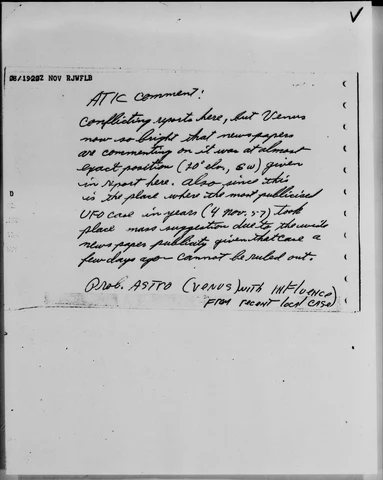 V
08/1928Z NOV RJWFLB
ATIC Comment:
Conflicting reports here, but Venus
now so bright that newspapers
are commenting on it was at almost
exact position (20° elv, SW) given
in report here. Also, since this
is the place where the most publicized
UFO case in years (4 Nov. 57) took
place mass suggestion due to the wide
news paper publicity given that case a
few days ago - cannot be ruled out.
D
Prob. ASTRO (VENUS) WITH INFLUENCE
FROM recent local case)